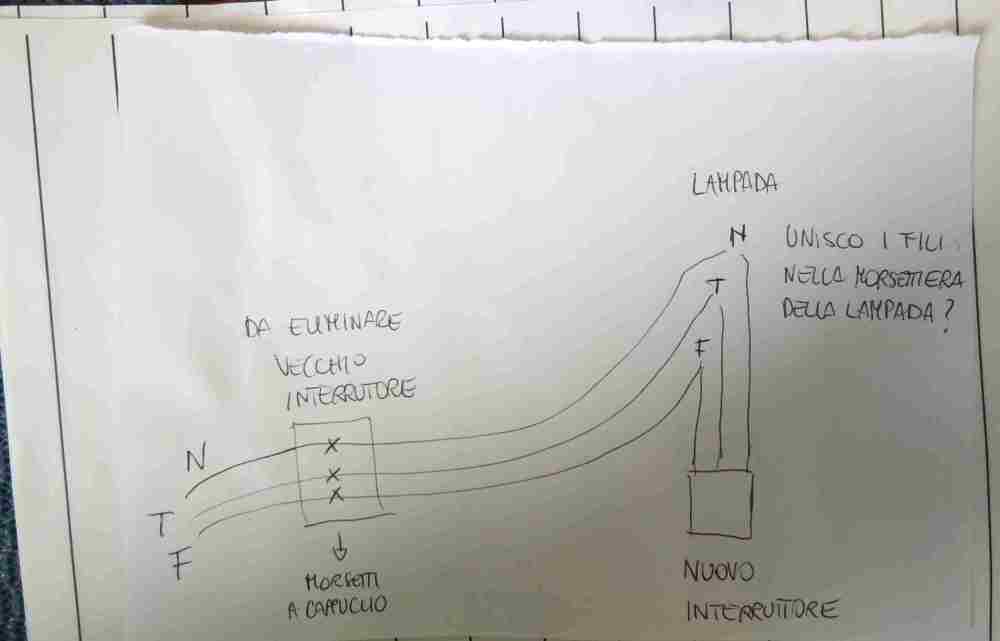 LAMPADA
N
T
F
UNISCO I FILI
NELLA MORSETTIERA
DELLA LAMPADA?
DA ELIMINARE
VECCHIO
INTERRUTORE
N
T
F
MORSETTI
A CAPPUCLIO
NUOVO
INTERRUTTORE